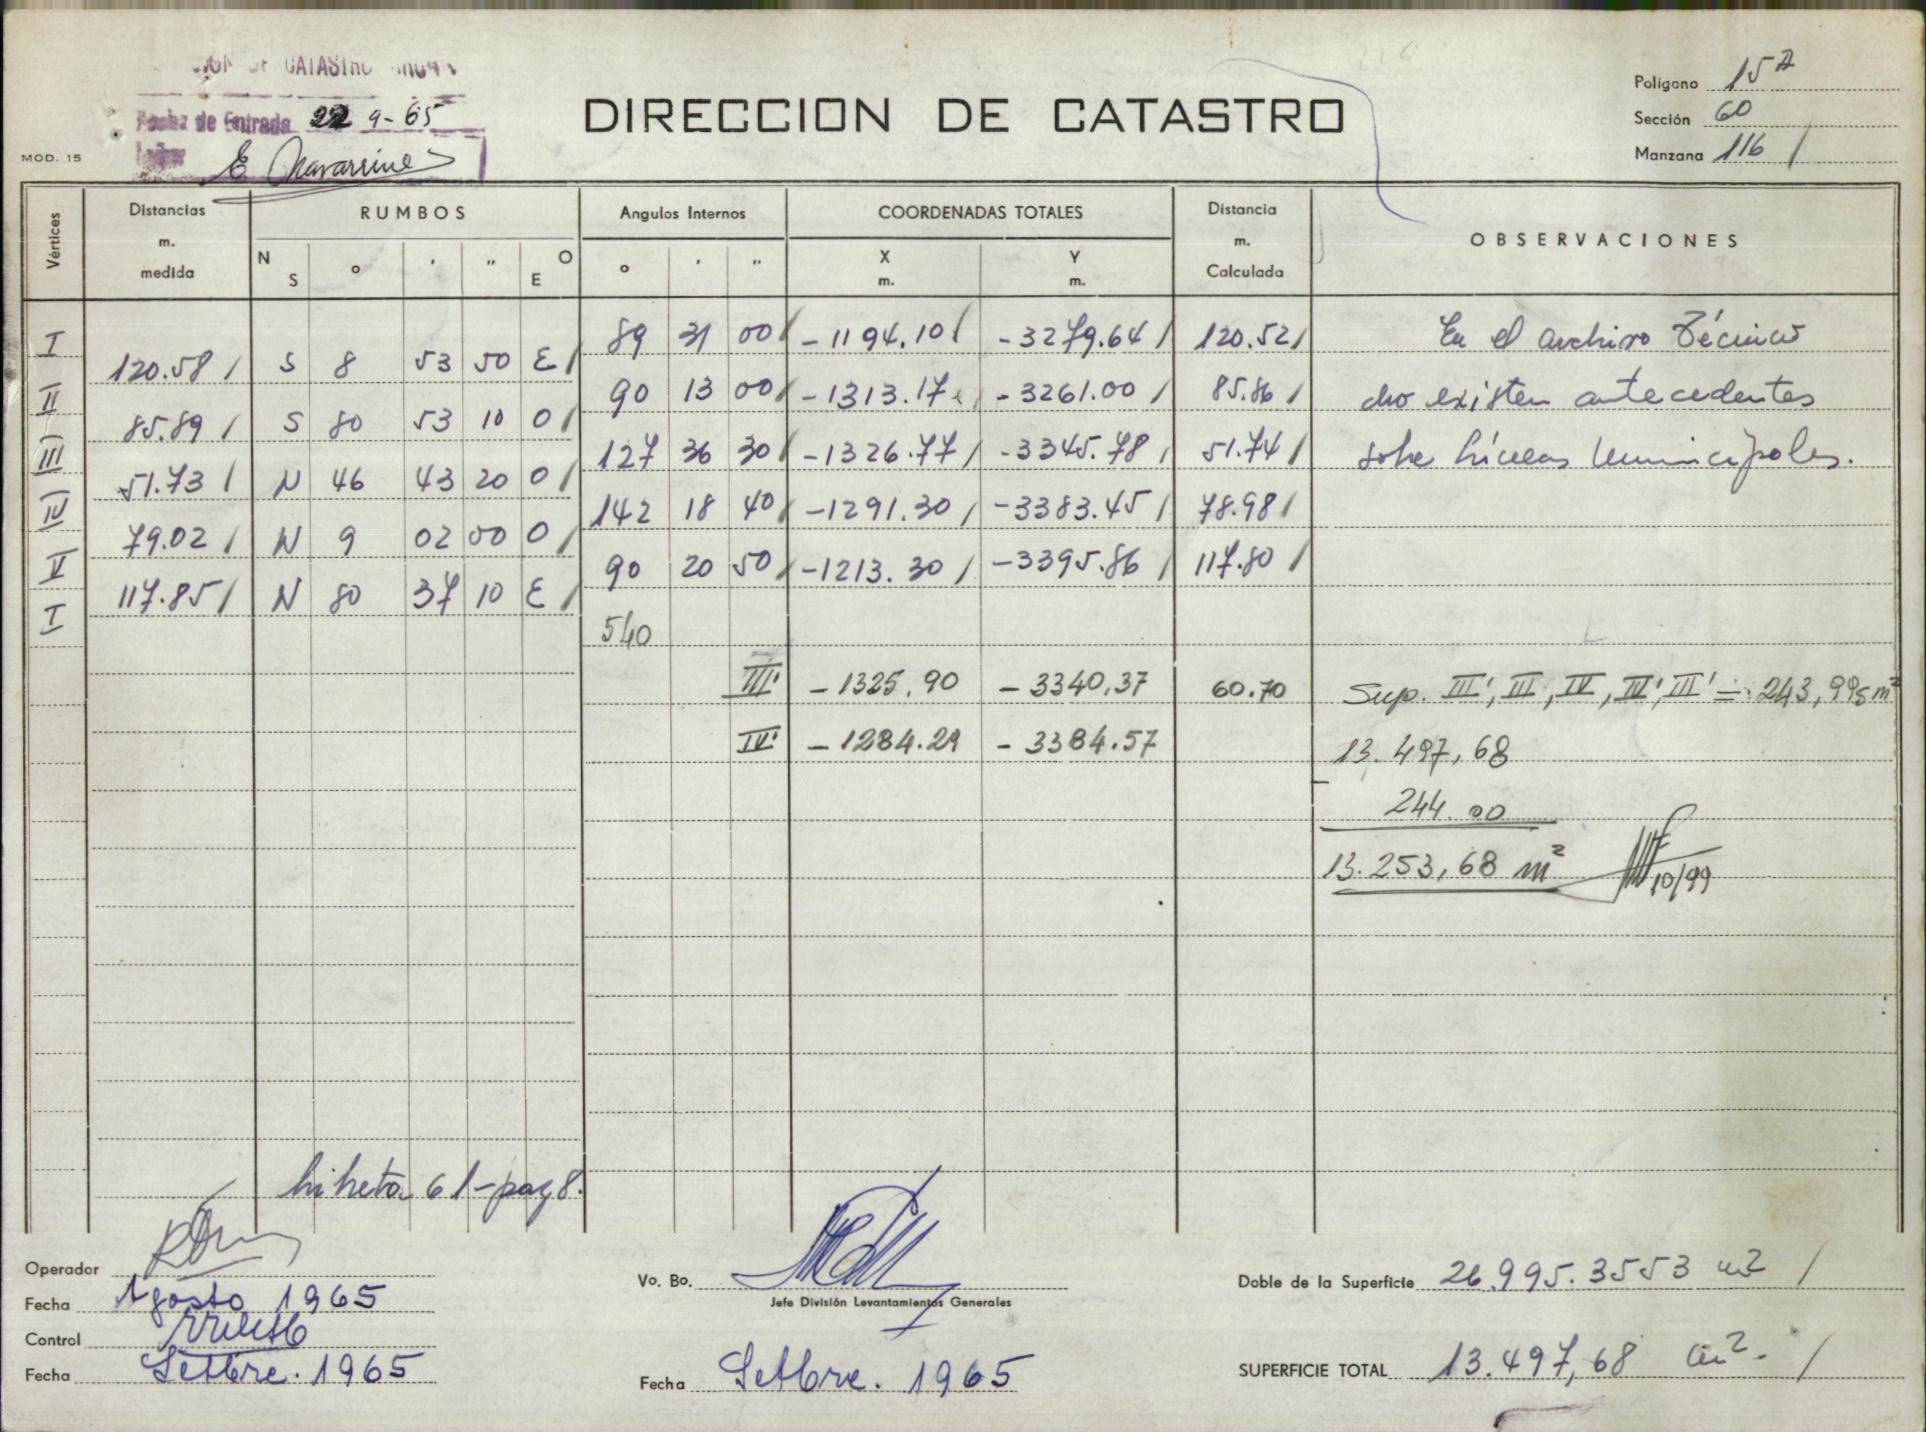 DE CATASTRO
Fecha de Entrada 22 9-65
E Navarrine
MOD. 15
DIRECCION DE CATASTRO
Polígono 15 A
Sección 60
Manzana 116 /
Vértices
Distancias m. medida
RUMBOS
N S ° ' " E O
Angulos Internos
° ' "
COORDENADAS TOTALES
X m. Y m.
Distancia m. Calculada
OBSERVACIONES
I 89 31 00 / -1194.10 / -3279.64 / 120.52 / En el archivo Técnico
120.58 / S 8 53 50 E /
II 90 13 00 / -1313.17 / -3261.00 / 85.86 / no existen antecedentes
85.89 / S 80 53 10 O /
III 127 36 30 / -1326.77 / -3345.78 / 51.74 / sobe Líneas Municipales.
51.73 / N 46 43 20 O /
IV 142 18 40 / -1291.30 / -3383.45 / 78.98 /
79.02 / N 9 02 00 O /
V 90 20 50 / -1213.30 / -3395.86 / 117.80 /
117.85 / N 80 37 10 E /
I
540
III' -1325,90 -3340,37 60.70 Sup. III', III, IV, IV', III' = 243,995 m²
IV' -1284.29 -3384.57
13.497,68
- 244.00
13.253,68 m²
10/99
libreta 61-pag 8.
Operador
Fecha Agosto 1965
Control
Fecha Setbre. 1965
Vo. Bo.
Jefe División Levantamientos Generales
Fecha Setbre. 1965
Doble de la Superficie 26.995.3553 m2 /
SUPERFICIE TOTAL 13.497,68 m2. /